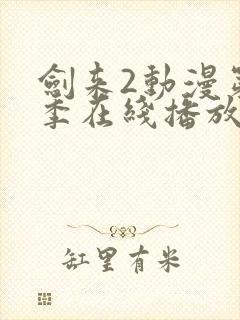 劍来2動漫第
季在綫播放
缸里有米